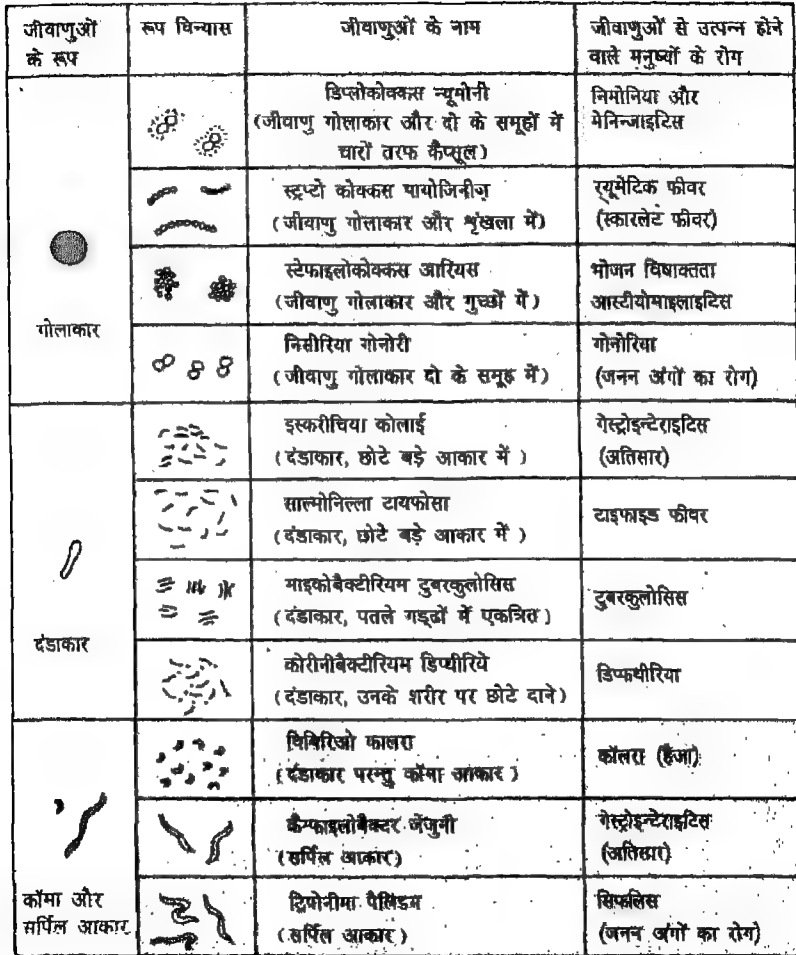 जीवाणुओं
के रूप
रूप विन्यास
जीवाणुओं के नाम
जीवाणुओं से उत्पन्न होने
वाले मनुष्यों के रोग
गोलाकार
डिप्लोकोक्कस न्यूमोनी
(जीवाणु गोलाकार और दो के समूहों में
चारों तरफ कैप्सूल)
निमोनिया और
मेनिन्जाइटिस
स्ट्रप्टो कोक्कस पायोजिनीज़
(जीवाणु गोलाकार और शृंखला में)
र्‌यूमेटिक फीवर
(स्कारलेट फीवर)
स्टेफाइलोकोक्कस आरियस
(जीवाणु गोलाकार और गुच्छों में)
भोजन विषाक्तता
आस्टीयोमाइलाइटिस
निसीरिया गोनोरी
(जीवाणु गोलाकार दो के समूह में)
गोनोरिया
(जनन अंगों का रोग)
दंडाकार
इस्करीचिया कोलाई
(दंडाकार, छोटे बड़े आकार में)
गेस्ट्रोइन्टेराइटिस
(अतिसार)
साल्मोनिल्ला टायफोसा
(दंडाकार, छोटे बड़े आकार में)
टाइफाइड फीवर
माइकोबैक्टीरियम टुबरकुलोसिस
(दंडाकार, पतले गड्ढों में एकत्रित)
टुबरकुलोसिस
कोरीनीबैक्टीरियम डिप्थीरिये
(दंडाकार, उनके शरीर पर छोटे दाने)
डिप्फथीरिया
कॉमा और
सर्पिल आकार
विबिरिओ कालरा
(दंडाकार परन्तु कॉमा आकार)
कॉलरा (हैजा)
कैम्फाइलोबैक्टर जेजुनी
(सर्पिल आकार)
गेस्ट्रोइन्टेराइटिस
(अतिसार)
ट्रिपोनीमा पैलिडम
(सर्पिल आकार)
सिफलिस
(जनन अंगों का रोग)